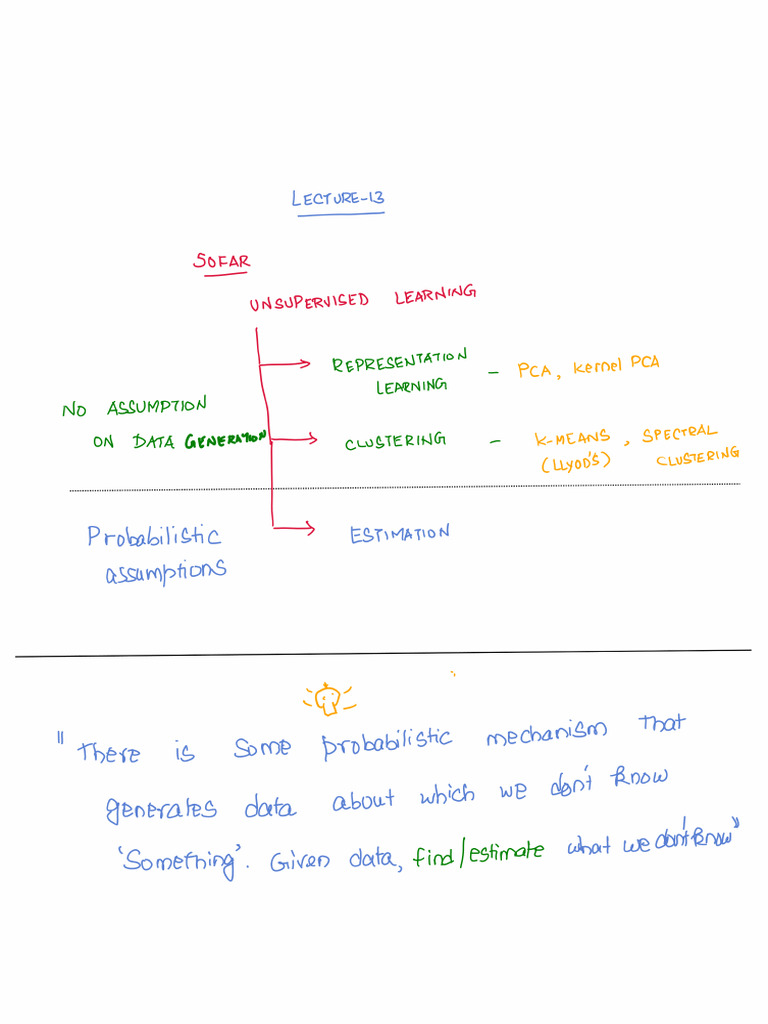 LECTURE-13
SOFAR
UNSUPERVISED LEARNING
REPRESENTATION
LEARNING
- PCA, Kernel PCA
NO ASSUMPTION
ON DATA GENERATION
CLUSTERING
- K-MEANS, SPECTRAL
(LLYOD'S) CLUSTERING
Probabilistic
assumptions
ESTIMATION
"There is some probabilistic mechanism that
generates data about which we don't know
'Something'. Given data, find/estimate what we don't know"